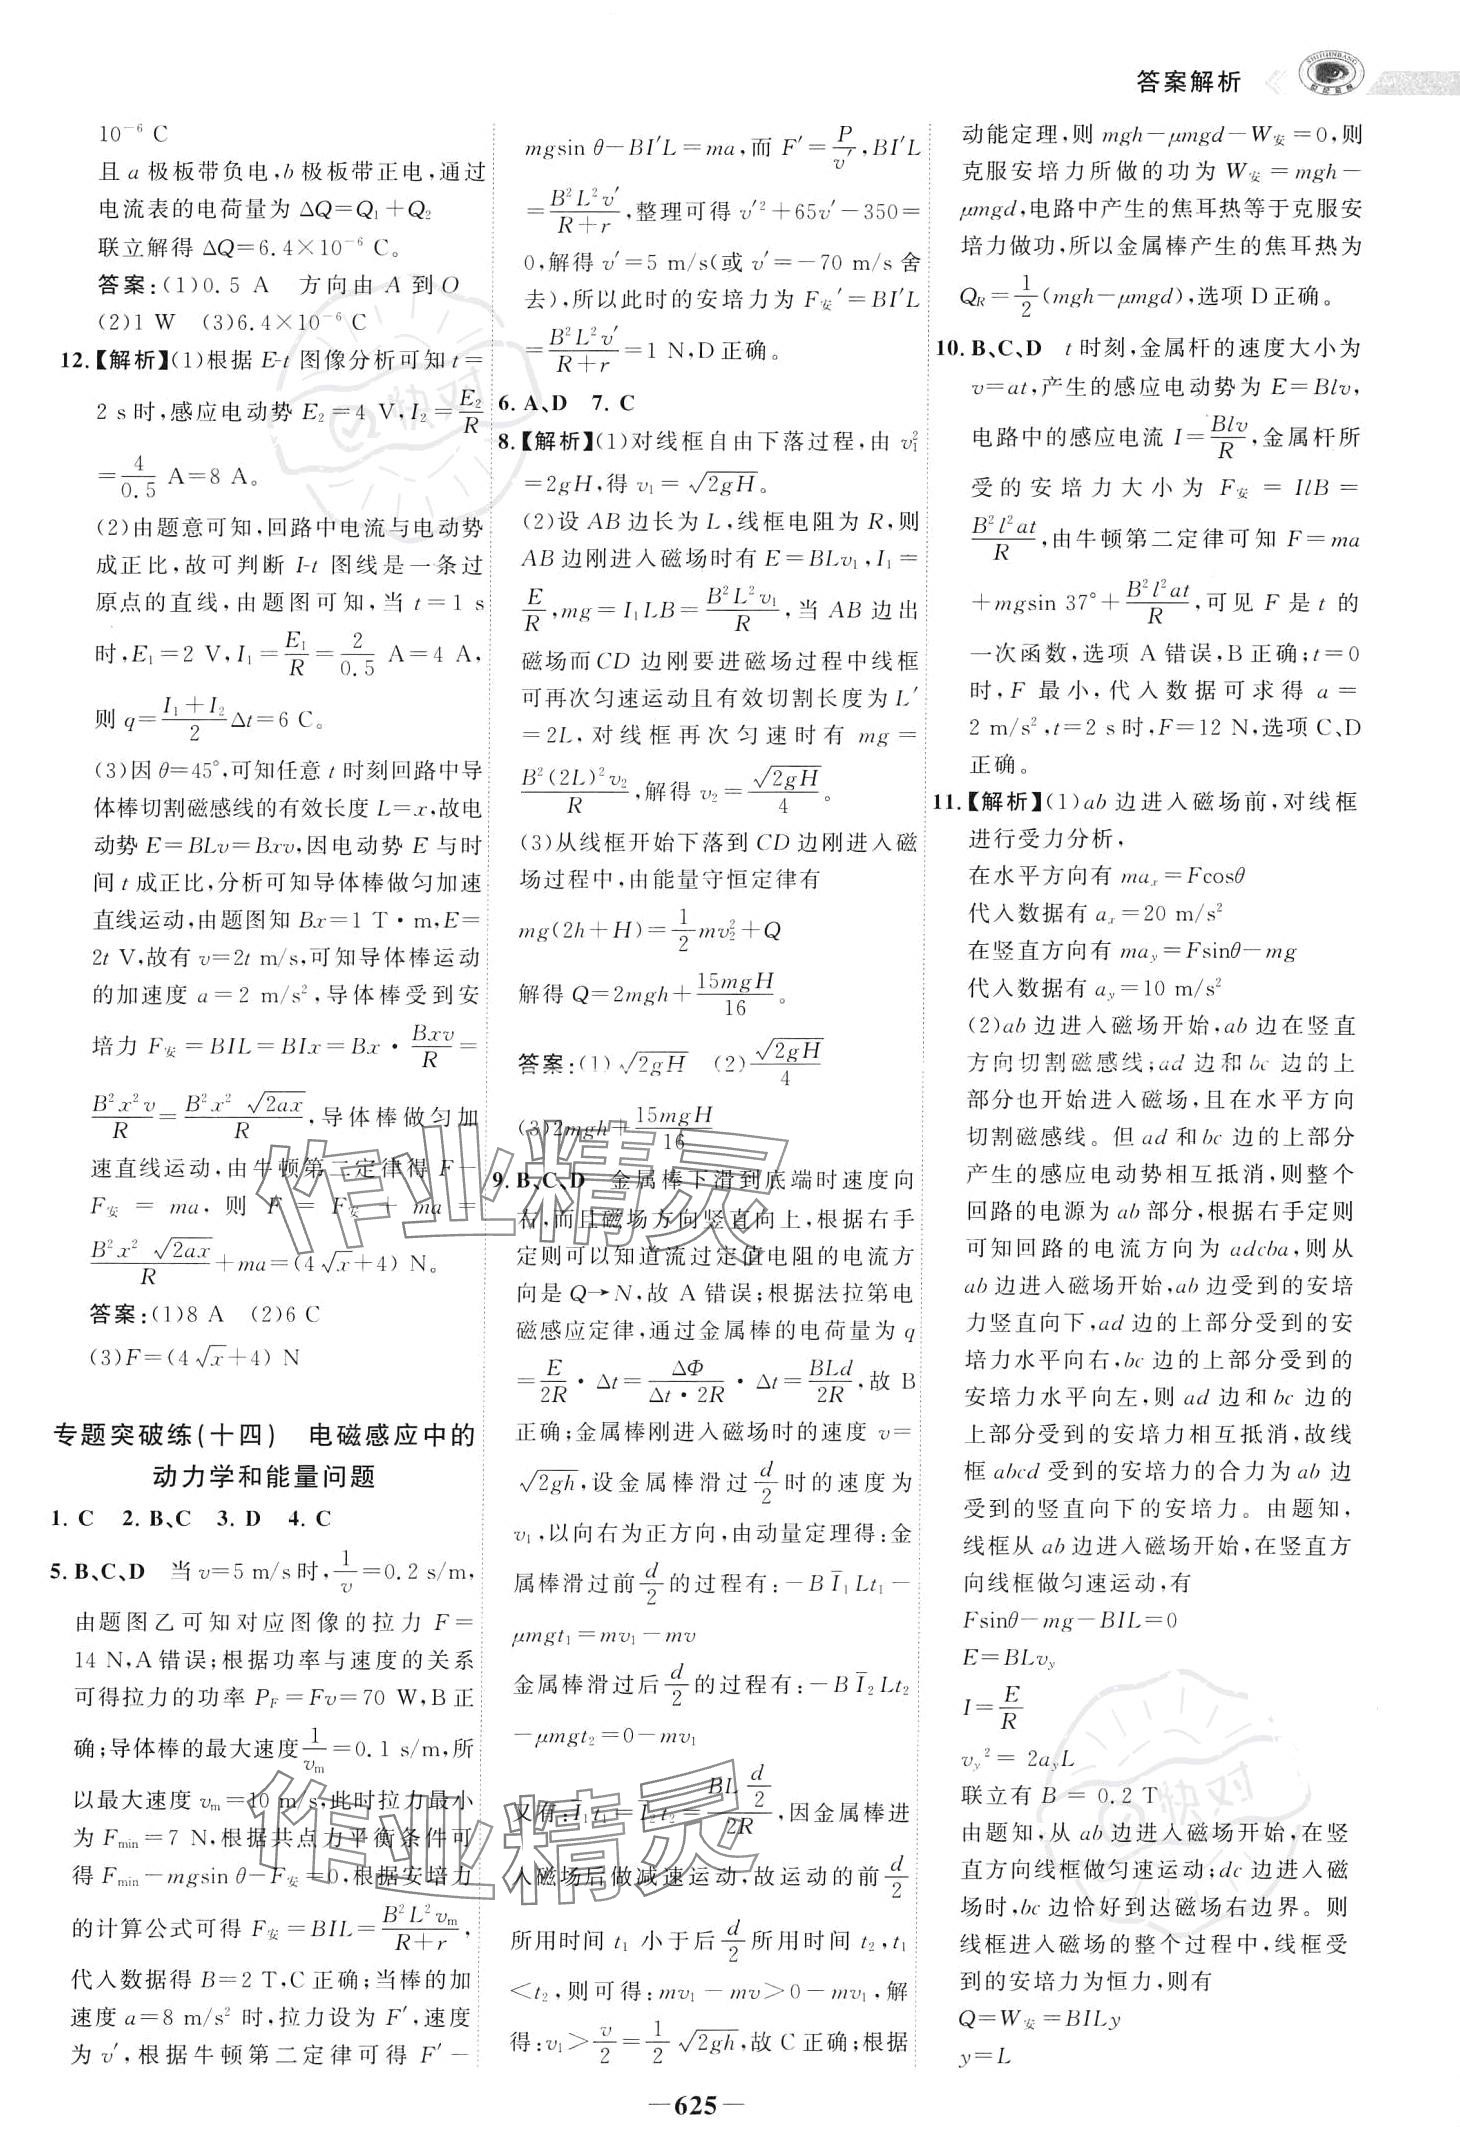 答案解析
10⁻⁶ C
且 a 极板带负电，b 极板带正电，通过
电流表的电荷量为 ΔQ=Q₁+Q₂
联立解得 ΔQ=6.4×10⁻⁶ C。
答案：(1)0.5 A　方向由 A 到 O
(2)1 W　(3)6.4×10⁻⁶ C
12.【解析】(1)根据 E-t 图像分析可知 t=
2 s时，感应电动势 E₂=4 V，I₂=E₂/R
=4/0.5 A=8 A。
(2)由题意可知，回路中电流与电动势
成正比，故可判断 I-t 图线是一条过
原点的直线，由题图可知，当 t=1 s
时，E₁=2 V，I₁=E₁/R=2/0.5 A=4 A，
则 q=(I₁+I₂)/2 Δt=6 C。
(3)因 θ=45°，可知任意 t 时刻回路中导
体棒切割磁感线的有效长度 L=x，故电
动势 E=BLv=Bxv，因电动势 E 与时
间 t 成正比，分析可知导体棒做匀加速
直线运动，由题图知 Bx=1 T·m，E=
2t V，故有 v=2t m/s，可知导体棒运动
的加速度 a=2 m/s²，导体棒受到安
培力 F安=BIL=BIx=Bx·Bxv/R=
B²x²v/R=B²x²√(2ax)/R，导体棒做匀加
速直线运动，由牛顿第二定律得 F-
F安=ma，则 F=F安+ma=
B²x²√(2ax)/R+ma=(4√x+4) N。
答案：(1)8 A　(2)6 C
(3)F=(4√x+4) N
专题突破练(十四)　电磁感应中的
动力学和能量问题
1. C　2. B、C　3. D　4. C
5. B、C、D　当 v=5 m/s时，1/v=0.2 s/m，
由题图乙可知对应图像的拉力 F=
14 N，A错误；根据功率与速度的关系
可得拉力的功率 P_F=Fv=70 W，B正
确；导体棒的最大速度1/vₘ=0.1 s/m，所
以最大速度 vₘ=10 m/s，此时拉力最小
为 Fmin=7 N，根据共点力平衡条件可
得 Fmin-mgsin θ-F安=0，根据安培力
的计算公式可得 F安=BIL=B²L²vₘ/(R+r)，
代入数据得 B=2 T，C正确；当棒的加
速度 a=8 m/s² 时，拉力设为 F′，速度
为 v′，根据牛顿第二定律可得 F′-
mgsin θ-BI′L=ma，而 F′=P/v′，BI′L
=B²L²v′/(R+r)，整理可得 v′²+65v′-350=
0，解得 v′=5 m/s(或 v′=-70 m/s 舍
去)，所以此时的安培力为 F安′=BI′L
=B²L²v′/(R+r)=1 N，D正确。
6. A、D　7. C
8.【解析】(1)对线框自由下落过程，由 v₁²
=2gH，得 v₁=√(2gH)。
(2)设 AB 边长为 L，线框电阻为 R，则
AB 边刚进入磁场时有 E=BLv₁，I₁=
E/R，mg=I₁LB=B²L²v₁/R，当 AB 边出
磁场而CD 边刚要进磁场过程中线框
可再次匀速运动且有效切割长度为 L′
=2L，对线框再次匀速时有 mg=
B²(2L)²v₂/R，解得 v₂=√(2gH)/4。
(3)从线框开始下落到 CD 边刚进入磁
场过程中，由能量守恒定律有
mg(2h+H)=1/2 mv₂²+Q
解得 Q=2mgh+15mgH/16。
答案：(1)√(2gH)　(2)√(2gH)/4
(3)2mgh+15mgH/16
9. B、C、D　金属棒下滑到底端时速度向
右，而且磁场方向竖直向上，根据右手
定则可以知道流过定值电阻的电流方
向是 Q→N，故 A 错误；根据法拉第电
磁感应定律，通过金属棒的电荷量为 q
=E/2R·Δt=ΔΦ/(Δt·2R)·Δt=BLd/2R，故 B
正确；金属棒刚进入磁场时的速度 v=
√(2gh)，设金属棒滑过 d/2 时的速度为
v₁，以向右为正方向，由动量定理得：金
属棒滑过前 d/2 的过程有：-BĪ₁Lt₁-
μmgt₁=mv₁-mv
金属棒滑过后 d/2 的过程有：-BĪ₂Lt₂
-μmgt₂=0-mv₁
又有：Ī₁t₁=Ī₂t₂=(BL d/2)/2R，因金属棒进
入磁场后做减速运动，故运动的前 d/2
所用时间 t₁ 小于后 d/2 所用时间 t₂，t₁
<t₂，则可得：mv₁-mv>0-mv₁，解
得：v₁>v/2=1/2 √(2gh)，故C正确；根据
动能定理，则 mgh-μmgd-W安=0，则
克服安培力所做的功为 W安=mgh-
μmgd，电路中产生的焦耳热等于克服安
培力做功，所以金属棒产生的焦耳热为
Q_R=1/2(mgh-μmgd)，选项D正确。
10. B、C、D　t 时刻，金属杆的速度大小为
v=at，产生的感应电动势为 E=Blv，
电路中的感应电流 I=Blv/R，金属杆所
受的安培力大小为 F安=IlB=
B²l²at/R，由牛顿第二定律可知 F=ma
+mgsin 37°+B²l²at/R，可见 F 是 t 的
一次函数，选项 A 错误，B正确；t=0
时，F 最小，代入数据可求得 a=
2 m/s²，t=2 s时，F=12 N，选项C、D
正确。
11.【解析】(1)ab 边进入磁场前，对线框
进行受力分析，
在水平方向有 maₓ=Fcosθ
代入数据有 aₓ=20 m/s²
在竖直方向有 ma_y=Fsinθ-mg
代入数据有 a_y=10 m/s²
(2)ab 边进入磁场开始，ab 边在竖直
方向切割磁感线；ad 边和 bc 边的上
部分也开始进入磁场，且在水平方向
切割磁感线。但 ad 和 bc 边的上部分
产生的感应电动势相互抵消，则整个
回路的电源为 ab 部分，根据右手定则
可知回路的电流方向为 adcba，则从
ab 边进入磁场开始，ab 边受到的安培
力竖直向下，ad 边的上部分受到的安
培力水平向右，bc 边的上部分受到的
安培力水平向左，则 ad 边和 bc 边的
上部分受到的安培力相互抵消，故线
框 abcd 受到的安培力的合力为 ab 边
受到的竖直向下的安培力。由题知，
线框从 ab 边进入磁场开始，在竖直方
向线框做匀速运动，有
Fsinθ-mg-BIL=0
E=BLv_y
I=E/R
v_y²=2a_yL
联立有 B=0.2 T
由题知，从 ab 边进入磁场开始，在竖
直方向线框做匀速运动；dc 边进入磁
场时，bc 边恰好到达磁场右边界。则
线框进入磁场的整个过程中，线框受
到的安培力为恒力，则有
Q=W安=BILy
y=L
—625—
作业精灵
作业精灵
快对
快对